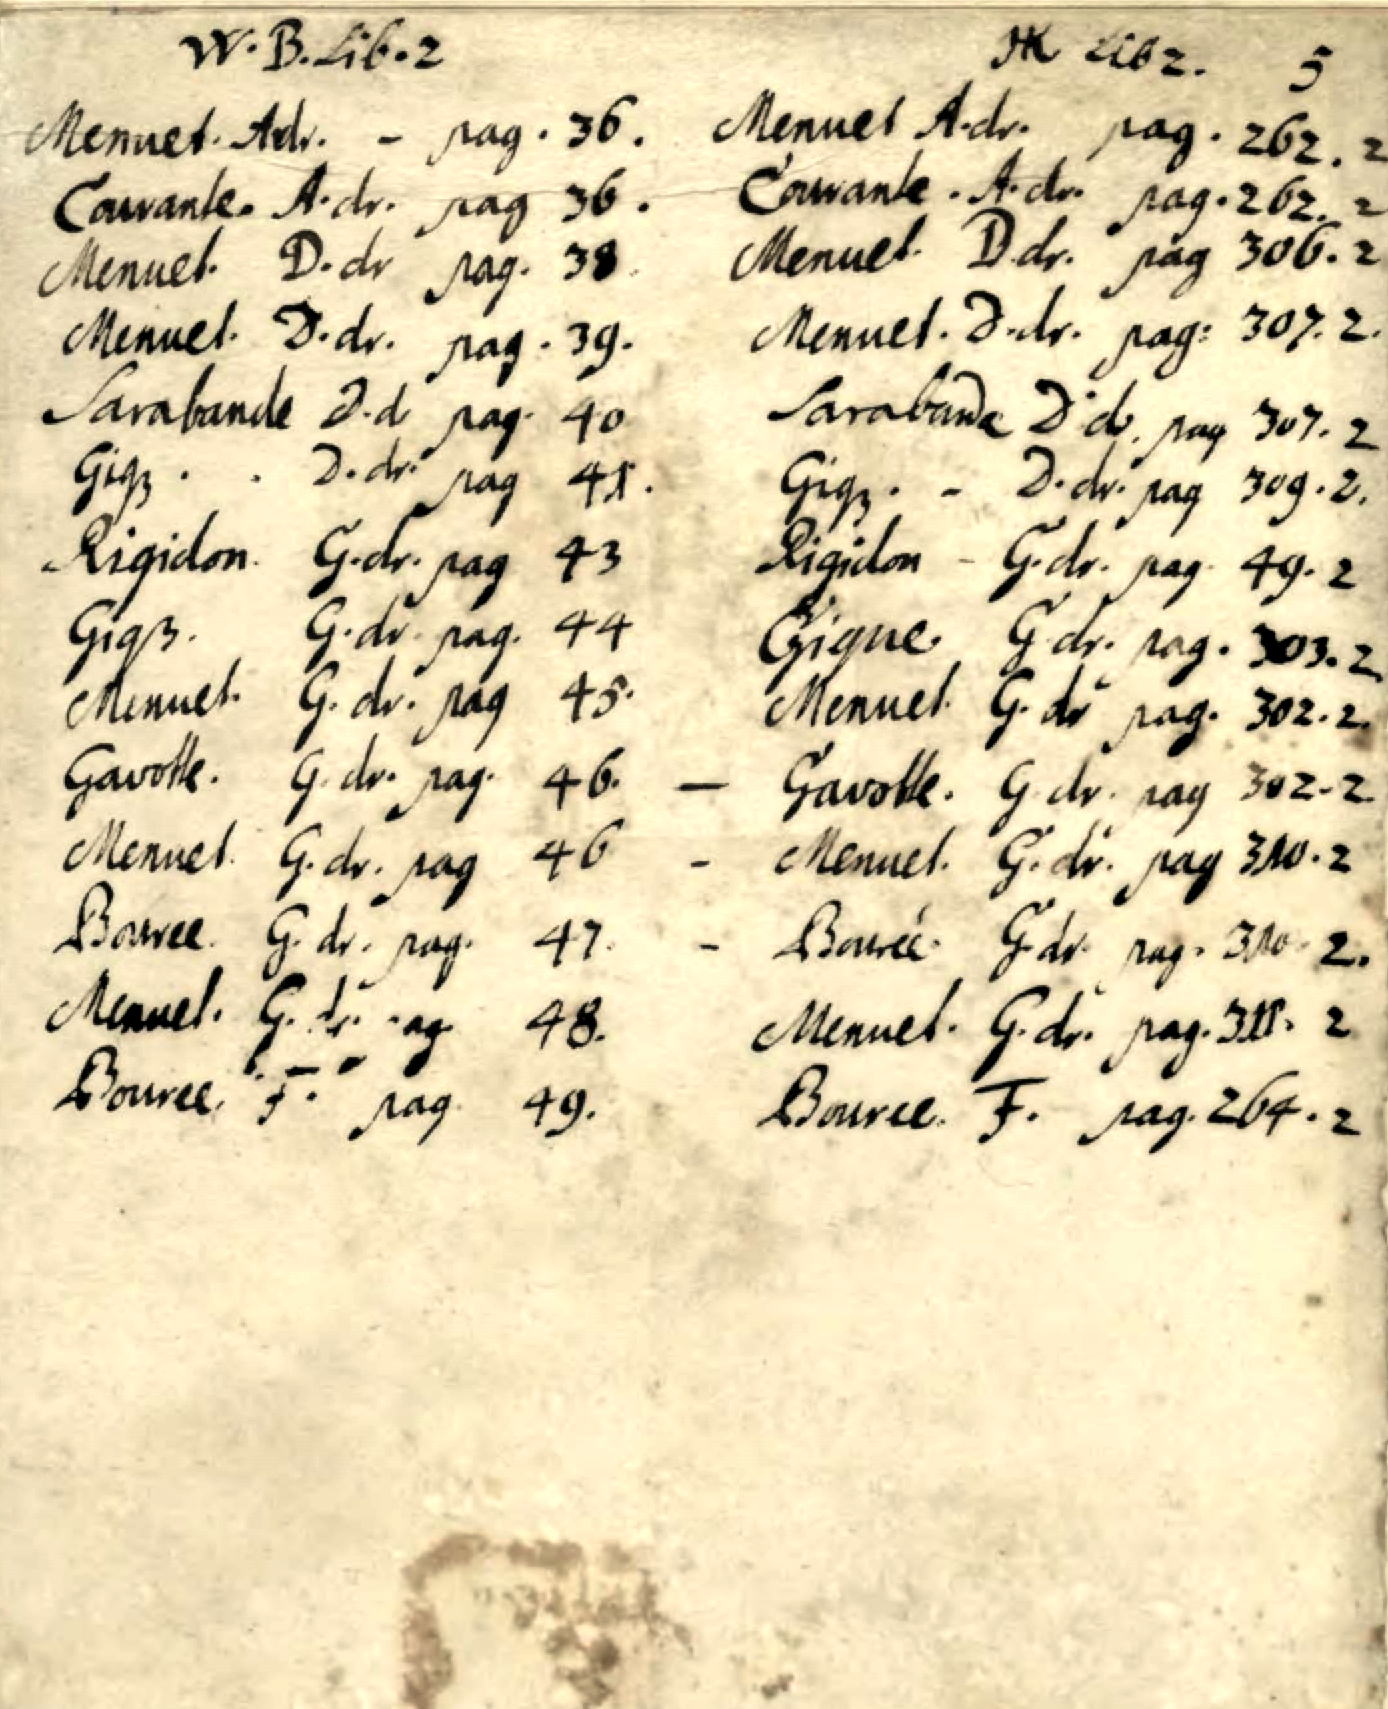 W. B. Lib. 2 JK Lib 2. 5
Menuet. A dr. - pag. 36. Menuet A. dr. pag. 262. 2
Courante. A. dr. pag 36. Courante. A. dr. pag. 262. 2
Menuet. D. dr pag. 38. Menuet. D dr. pag 306. 2
Menuet. D. dr. pag. 39. Menuet. D. dr. pag: 307. 2.
Sarabande D. d pag. 40 Sarabande D d. pag 307. 2
Giqz . . D. dr. pag 41. Giqz. - D. dr. pag 309. 2.
Rigidon. G. dr. pag 43 Rigidon - G. dr. pag. 49. 2
Giqz. G. dr. pag. 44 Gique. G dr. pag. 303. 2
Menuet. G. dr. pag 45. Menuet. G. dr pag. 302. 2.
Gavotte. G. dr. pag. 46. — Gavotte. G. dr. pag 302. 2.
Menuet. G. dr. pag 46 - Menuet. G. dr. pag 310. 2
Bouree. G. dr. pag. 47. - Boureé. G dr. pag. 310. 2.
Menuet. G. dr. pag. 48. Menuet. G. dr. pag. 311. 2
Bouree. F. pag. 49. Bouree. F. pag. 264. 2